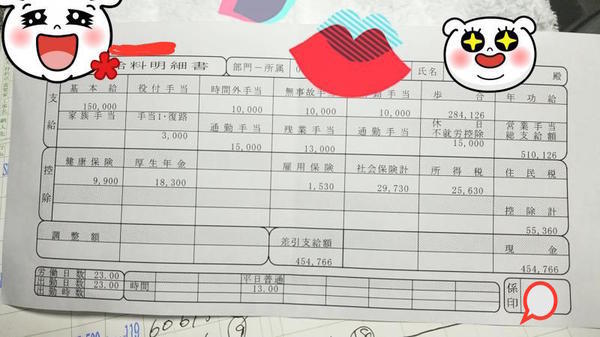 給料明細書 部門－所属 0 氏名 殿
支給
基本給 役付手当 時間外手当 無事故手当 手当 歩合 年功給
150,000 10,000 10,000 10,000 284,126
家族手当 手当1・復路 通勤手当 残業手当 通勤手当 休日不就労控除 営業手当 総支給額
3,000 15,000 13,000 15,000 510,126
控除
健康保険 厚生年金 雇用保険 社会保険計 所得税 住民税
9,900 18,300 1,530 29,730 25,630
控除計
55,360
調整額 差引支給額 現金
454,766 454,766
労働日数 23.00 平日普通
出勤日数 23.00 時間 13.00
出勤時数
係印
J19